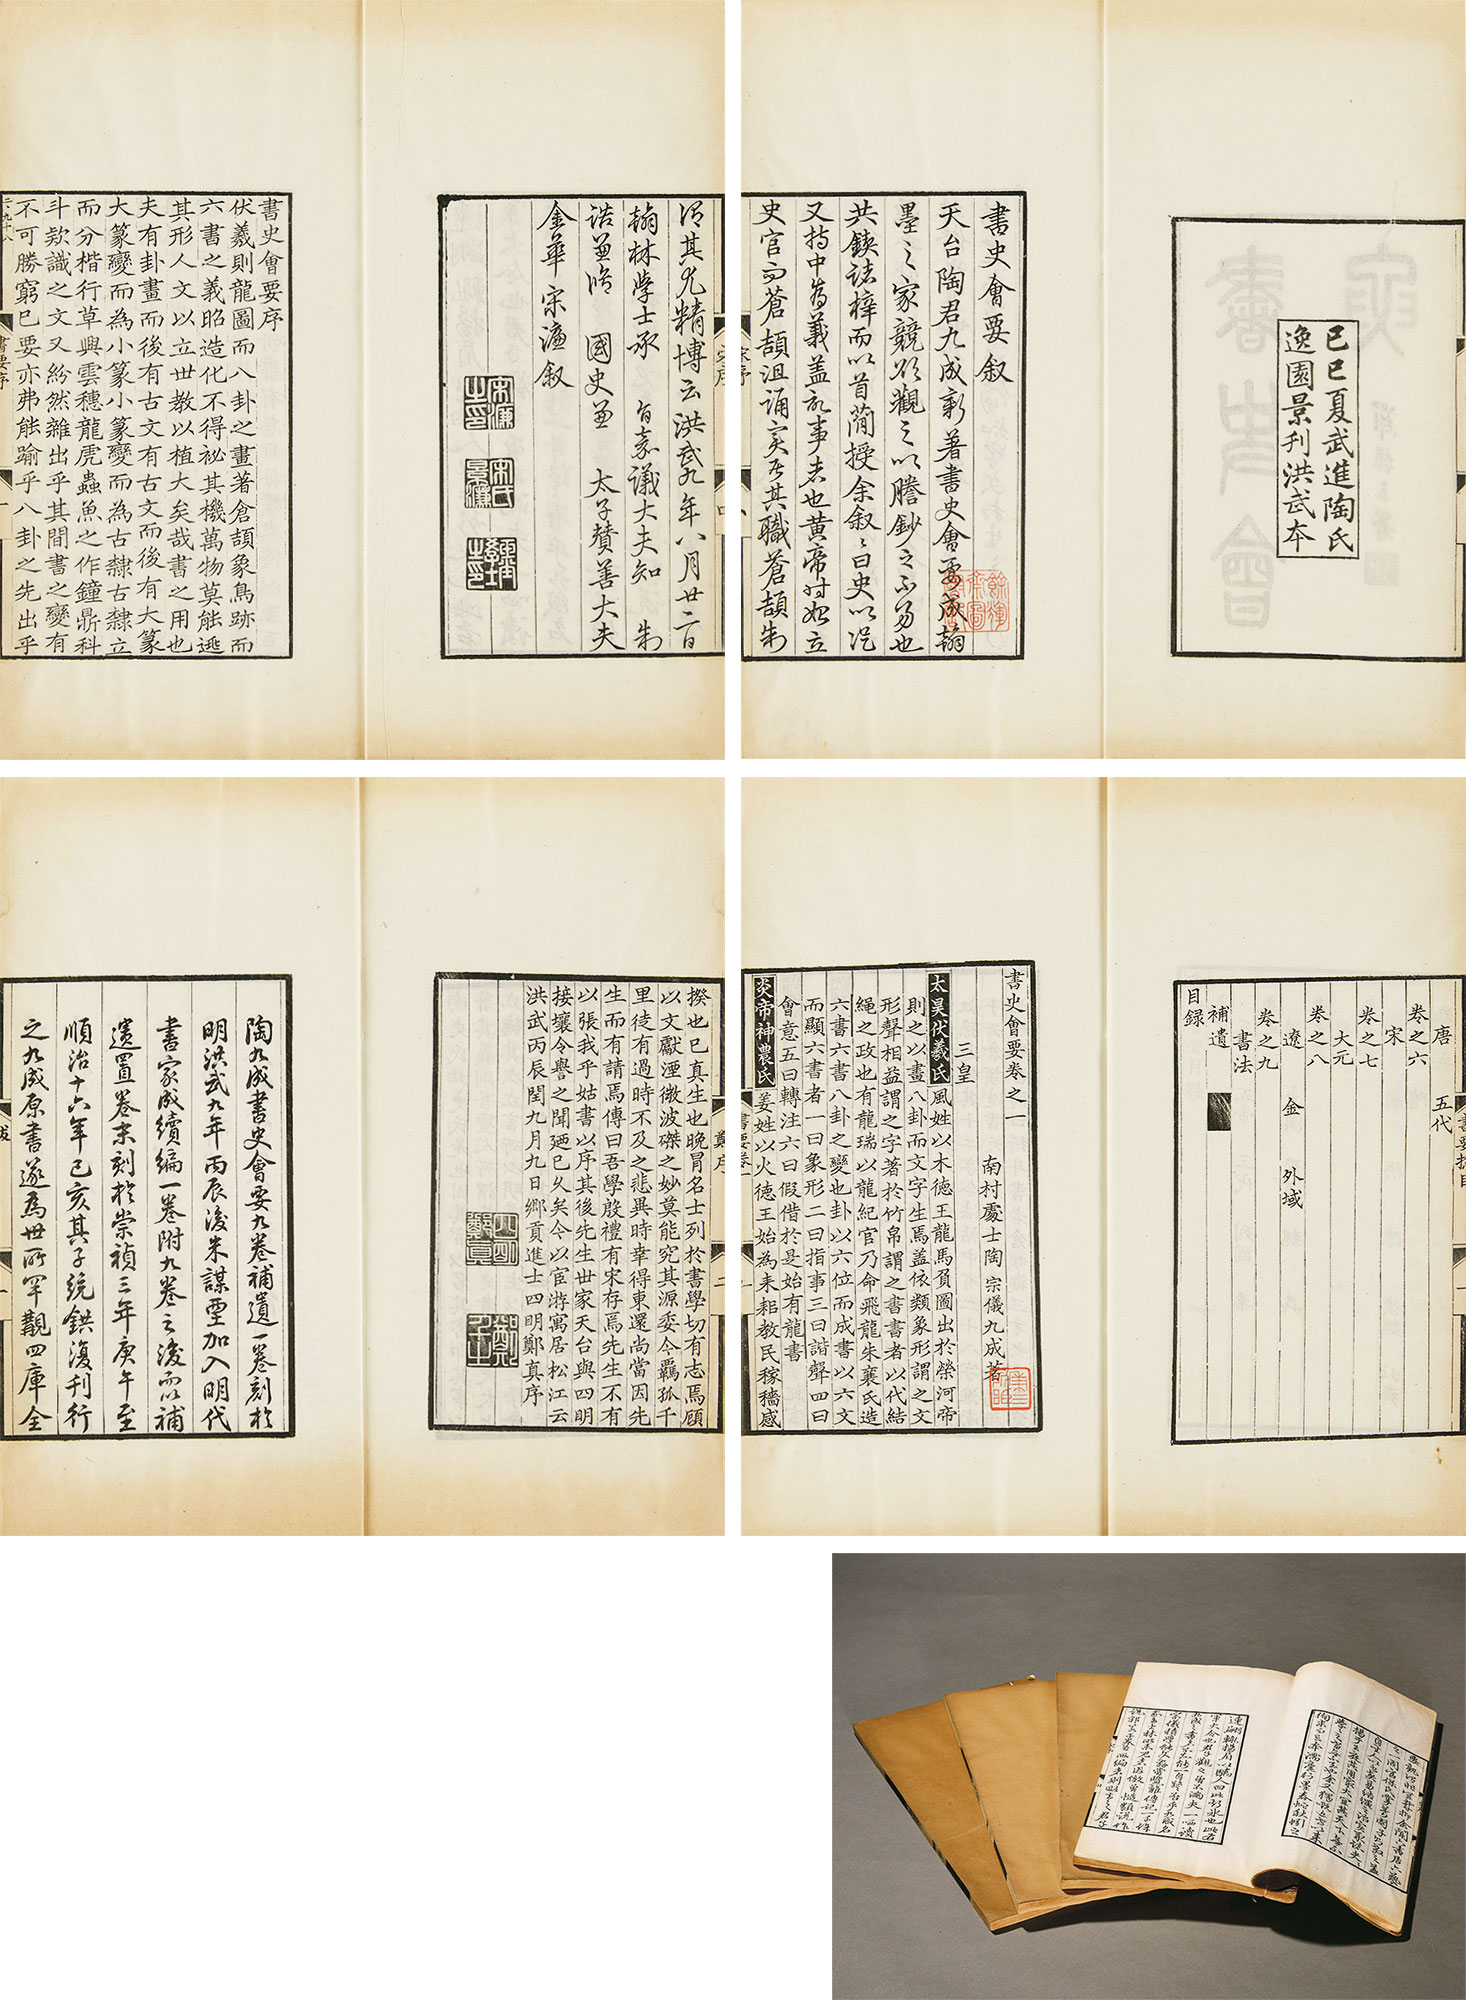 己巳夏武進陶氏
逸園景刊洪武本
書史會要叙
天台陶君九成新著書史會要成翰
墨之家競欲觀之以謄鈔之不易也
共鋟諸梓而以首簡授余叙々曰史以從
又持中為義蓋記事者也黄帝時始立
史官而蒼頡沮誦實居其職蒼頡制
謂其尤精博云洪武九年八月廿二日
翰林學士承 旨嘉議大夫知 制
誥兼脩 國史兼 太子賛善大夫
金華宋濂叙
宋濂之印
宋氏景濂
書史會要序
伏羲則龍圖而八卦之畫著倉頡象鳥跡而
六書之義昭造化不得祕其機萬物莫能遁
其形人文以立世教以植大矣哉書之用也
夫有卦畫而後有古文有古文而後有大篆
大篆變而為小篆小篆變而為古隸古隸立
而分楷行草與雲穗龍虎蟲魚之作鐘鼎科
斗款識之文又紛然雜出乎其間書之變有
不可勝窮已要亦弗能踰乎八卦之先出乎
書要序
唐 五代
卷之六
宋
卷之七
大元
卷之八
遼 金 外域
卷之九
書法
補遺
目録
書史會要卷之一
南村處士陶 宗儀九成著
三皇
太昊伏羲氏風姓以木德王龍馬負圖出於榮河帝
則之以畫八卦而文字生焉蓋依類象形謂之文
形聲相益謂之字著於竹帛謂之書書者以代結
繩之政也有龍瑞以龍紀官乃命飛龍朱襄氏造
六書六書八卦之變也卦以六位而成書以六文
而顯六書者一曰象形二曰指事三曰諧聲四曰
會意五曰轉注六曰假借於是始有龍書
炎帝神農氏姜姓以火德王始為耒耜教民稼穡感
書要卷一
揆也已真生也晚冐名士列於書學切有志焉顧
以文獻湮微波磔之妙莫能究其源委今羈孤千
里徒有過時不及之悲異時幸得東還尚當因先
生而有請焉傳曰吾學殷禮有宋存焉先生不有
以張我乎姑書以序其後先生世家天台與四明
接壤令譽之聞廼已久矣今以宦游寓居松江云
洪武丙辰閏九月九日鄉貢進士四明鄭真序
鄭序
二
陶九成書史會要九卷補遺一卷刻於
明洪武九年丙辰後朱謀垔加入明代
書家成續編一卷附九卷之後而以補
遺置卷末刻於崇禎三年庚午至
順治十六年己亥其子統鉷復刊行
之九成原書遂為世所罕觀四庫全